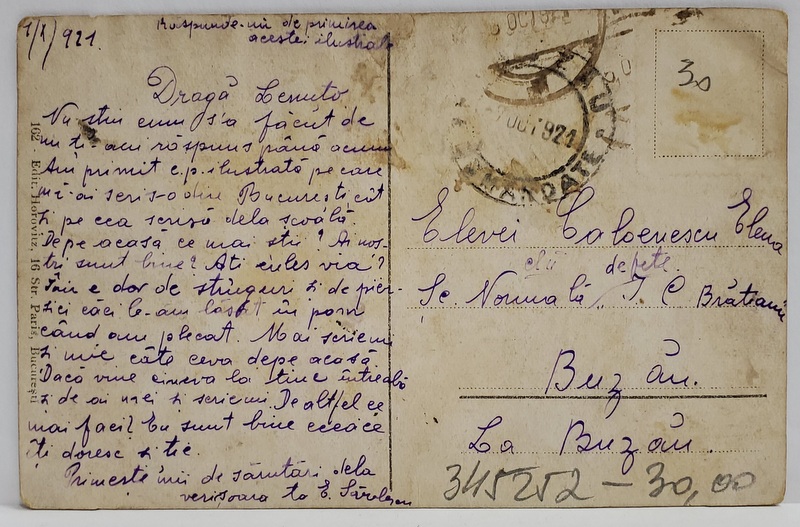 1/X/921.
Răspunde-mi de primirea
acestei ilustrate
Dragă Lenuto
Nu știu cum s'a făcut de
nu ți-am răspuns până acum
Am primit c.p. ilustrată pe care
mi-ai scris-o din București cât
și pe cea scrisă dela școală.
Depe acasă ce mai știi? Ai noș-
tri sunt bine? Ați cules via?
Țăii e dor de struguri și de pier-
sici căci le-am lăsat în pom
când am plecat. Mai scriemi
și mie câte ceva depe acasă
Dacă vine cineva la tine întreabă
și de ai mei și scriemi. De altfel ce
mai faci? Eu sunt bine ceeace
îți doresc și ție.
Primește mii de sărutări dela
verișoara ta E.
162 - Edit. Horovitz, 16 Str. Paris, București
OCT 921
OCT 921
BUZĂU
MANDATE
30
Elevei Caloenescu Elena
de fete
Șc. Normală I. C. Brătianu
Buzău.
La Buzău.
345252 – 30,00